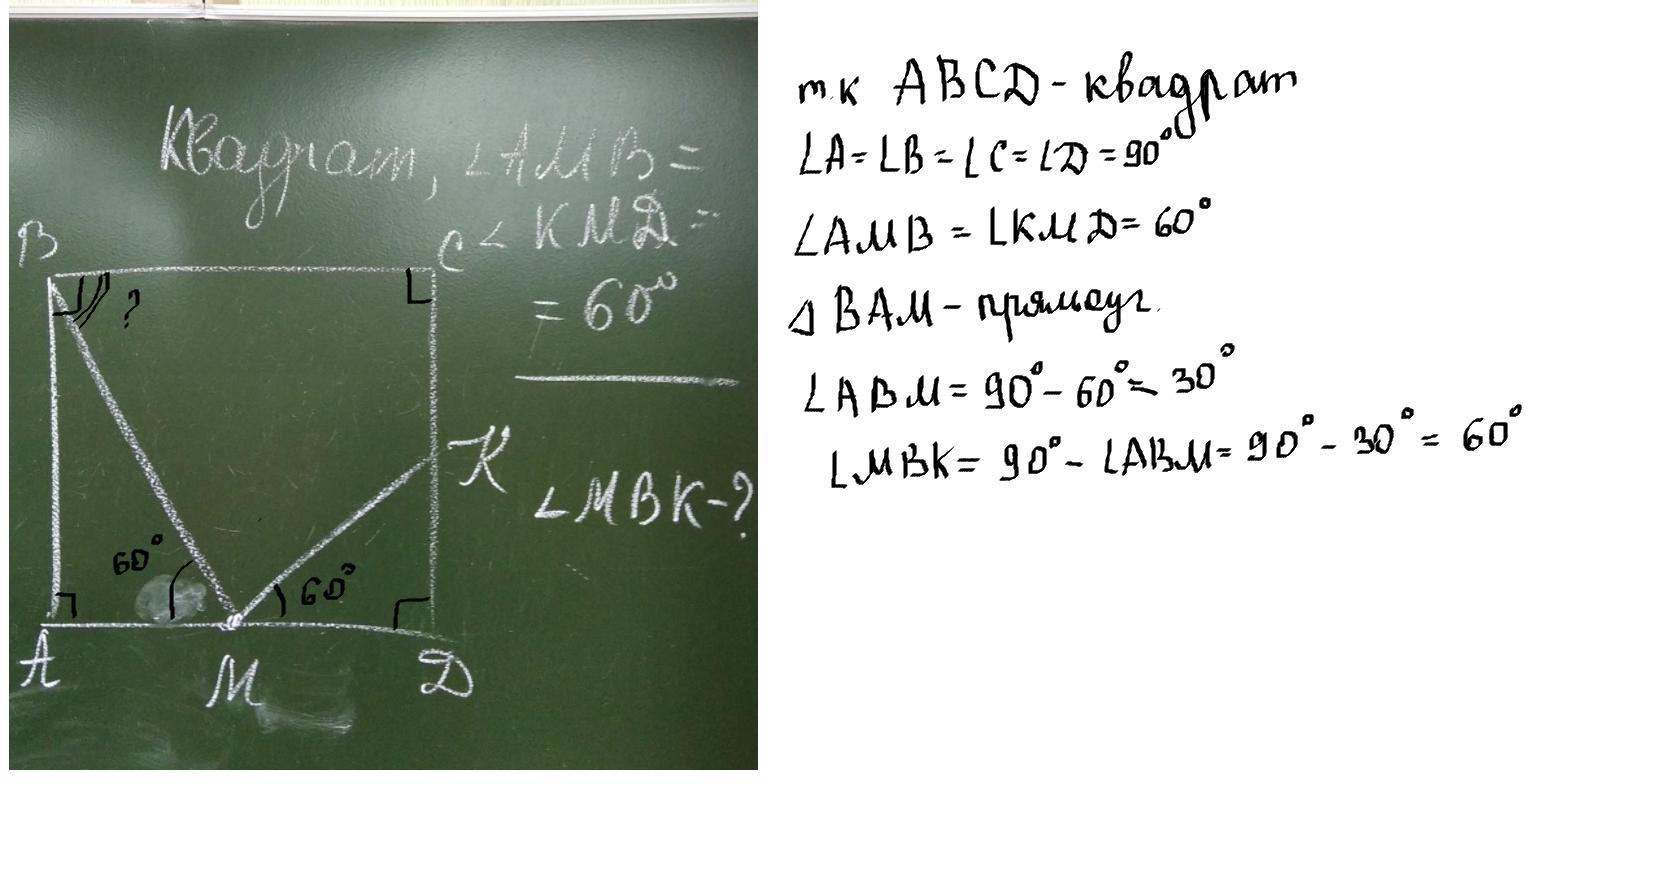 Квадрат, ∠AMB =
∠KMD =
= 60°
B
C
?
K
∠MBK-?
60°
60°
A
M
D
т.к ABCD - квадрат
∠A = ∠B = ∠C = ∠D = 90°
∠AMB = ∠KMD = 60°
△ BAM - прямоуг.
∠ABM = 90° - 60° = 30°
∠MBK = 90° - ∠ABM = 90° - 30° = 60°